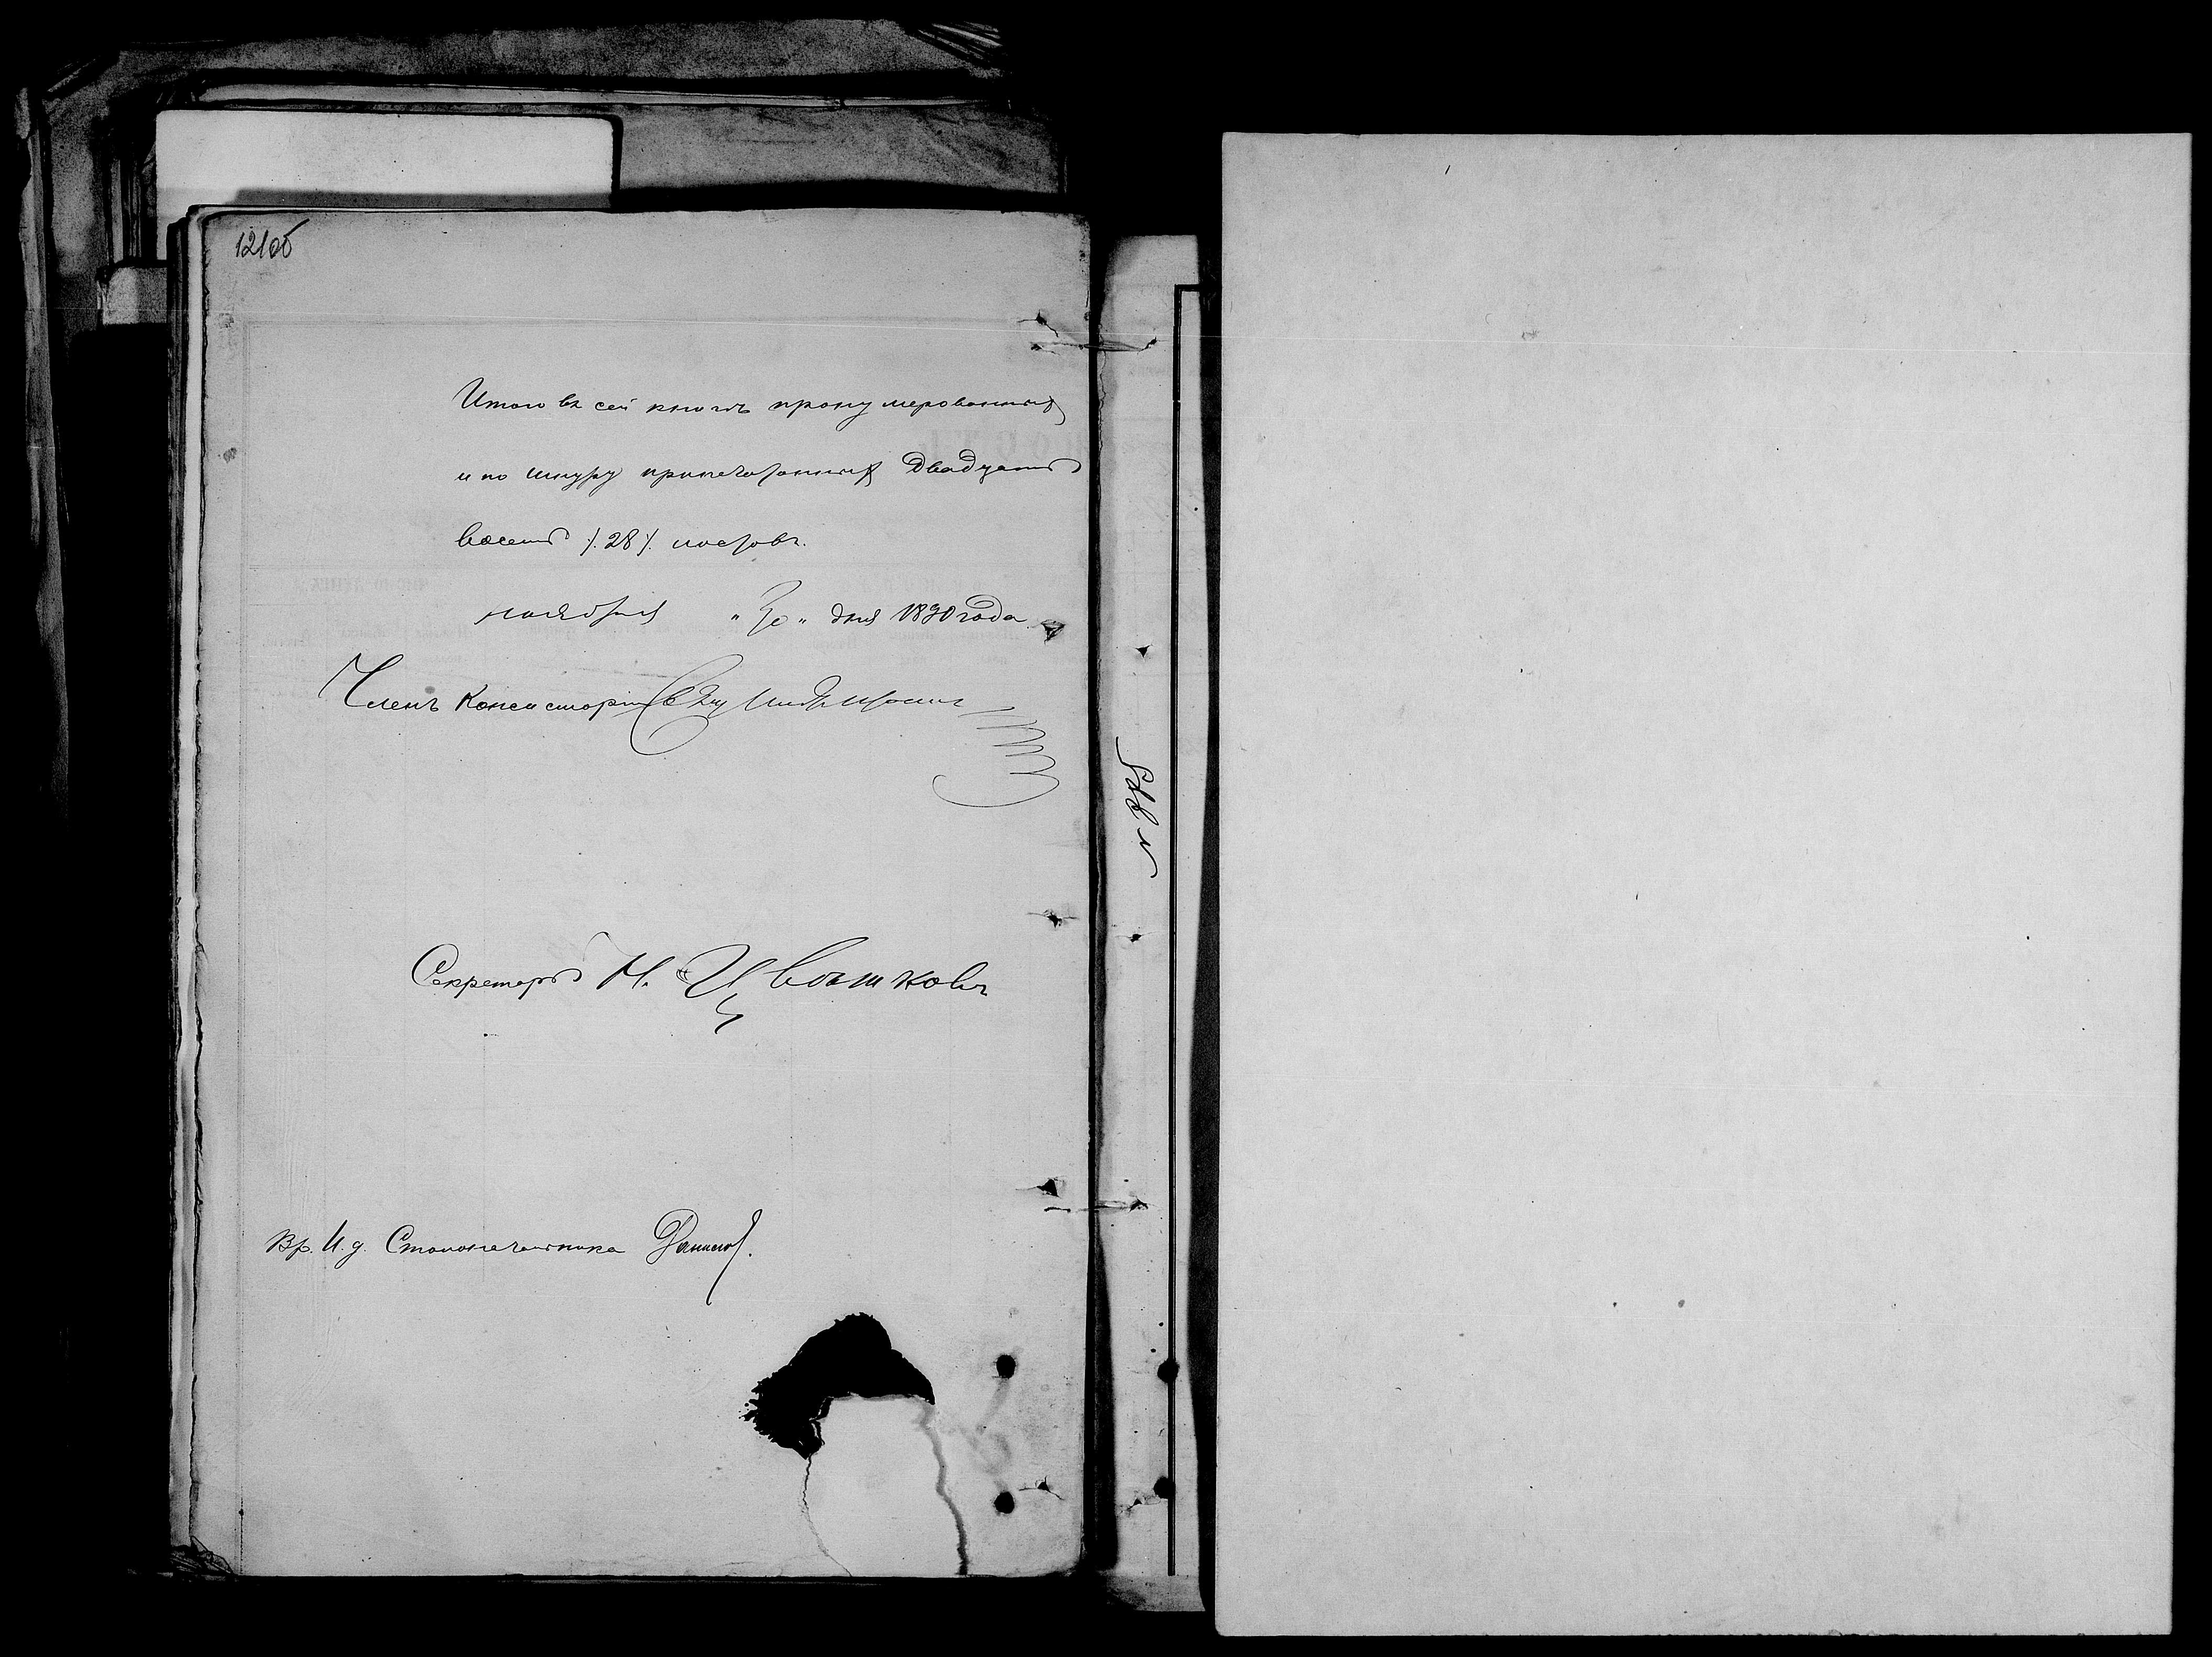 121об
Итого въ сей книгѣ пронумерованныхъ
и по шнуру припечатанныхъ двадцать
восемь /.28/. листовъ.
ноября "30" дня 1890 года
Членъ Консисторіи Свящ
Секретарь Н. Цвѣтковъ
Вр. И. д. Столоначальника Данилов.